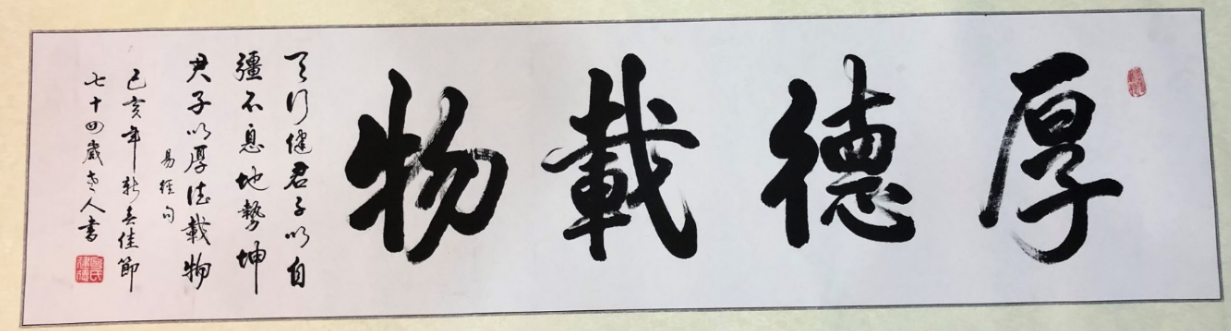 厚德載物
天行健君子以自
彊不息地勢坤
君子以厚德載物
易經句
己亥年新春佳節
七十四歲老人書